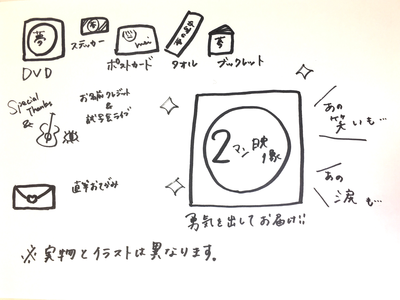 夢
夢
夢
DVD
ステッカー
ポストカード
タオル
ブックレット
Special
Thanks
&
お名前クレジット
&
試写会ライブ
あの
笑いも…
2マン映像
あの
涙も…
直筆おてがみ
勇気を出してお届け!!
※実物とイラストは異なります。